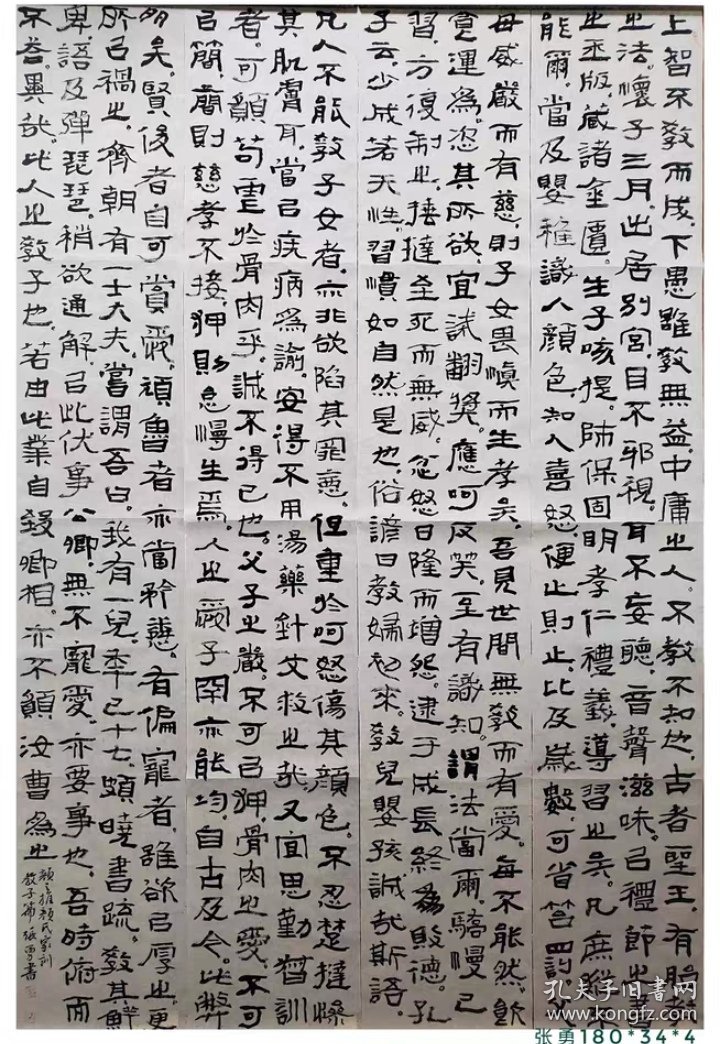 上智不教而成。下愚雖教無益。中庸之人。不教不知也。古者聖王。有胎教
之法。懷子三月。出居別宮。目不邪視。耳不妄聽。音聲滋味。以禮節之。書
之玉版。藏諸金匱。生子咳提。師保固明孝仁禮義。導習之矣。凡庶縱不
能爾。當及嬰稚。識人顏色。知人喜怒。便止則止。比及歲數。可省笞罰。
母威嚴而有慈。則子女畏慎而生孝矣。吾見世間無教而有愛。每不能然。飲
食運為。恣其所欲。宜誡翻獎。應呵反笑。至有識知。謂法當爾。驕慢已
習。方復制之。捶撻至死而無威。忿怒日隆而增怨。逮于成長。終為敗德。孔
子云。少成若天性。習慣如自然是也。俗諺曰教婦初來。教兒嬰孩誠哉斯語。
凡人不能教子女者。亦非欲陷其罪惡。但重於呵怒傷其顏色。不忍楚撻慘
其肌膚耳。當以疾病為諭。安得不用湯藥針艾救之哉。又宜思勤督訓
者。可願苟虐於骨肉乎。誠不得已也。父子之嚴。不可以狎骨肉之愛。不可
以簡。簡則慈孝不接。狎則怠慢生焉。人之愛子罕亦能均。自古及今。此弊
多矣。賢俊者自可賞愛。頑魯者亦當矜憐。有偏寵者。雖欲以厚之。更
所以禍之。齊朝有一士大夫。嘗謂吾曰。我有一兒。年已十七。頗曉書疏。教其鮮
卑語及彈琵琶。稍欲通解。以此伏事公卿。無不寵愛。亦要事也。吾時俯而
不答。異哉。此人之教子也。若由此業自致卿相。亦不願汝曹為之
顏之推顏氏家訓
教子篇 張勇書
孔夫子旧书网
www.kongfz.com
张勇180*34*4